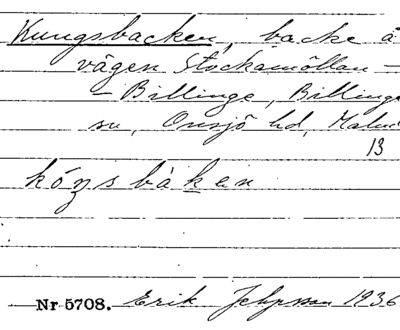 Kungsbacken, backe å
vägen Stockamöllan –
– Billinge, Billinge
sn, Onsjö hd, Malm
13
kóŋsbàken
Nr 5708. Erik 1936